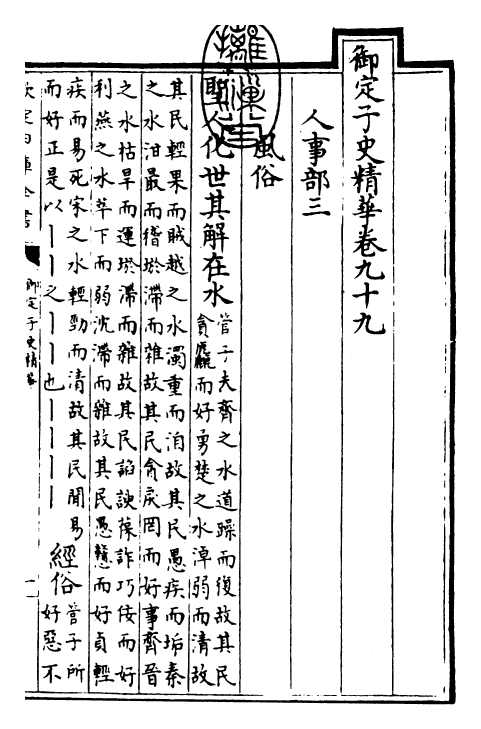 御定子史精華卷九十九
人事部三
風俗
聖人化世其解在水
管子夫齊之水道躁而復故其民
貪麤而好勇楚之水淖弱而清故
其民輕果而賊越之水濁重而洎故其民愚疾而垢秦
之水泔最而稽淤滯而雜故其民貪戾罔而好事齊晉
之水枯旱而運淤滯而雜故其民諂諛葆詐巧佞而好
利燕之水萃下而弱沈滯而雜故其民愚戇而好貞輕
疾而易死宋之水輕勁而清故其民閒易
而好正是以丨丨之丨丨也丨丨丨丨
經俗
管子所
好惡不
欽定四庫全書
御定子史精華
一